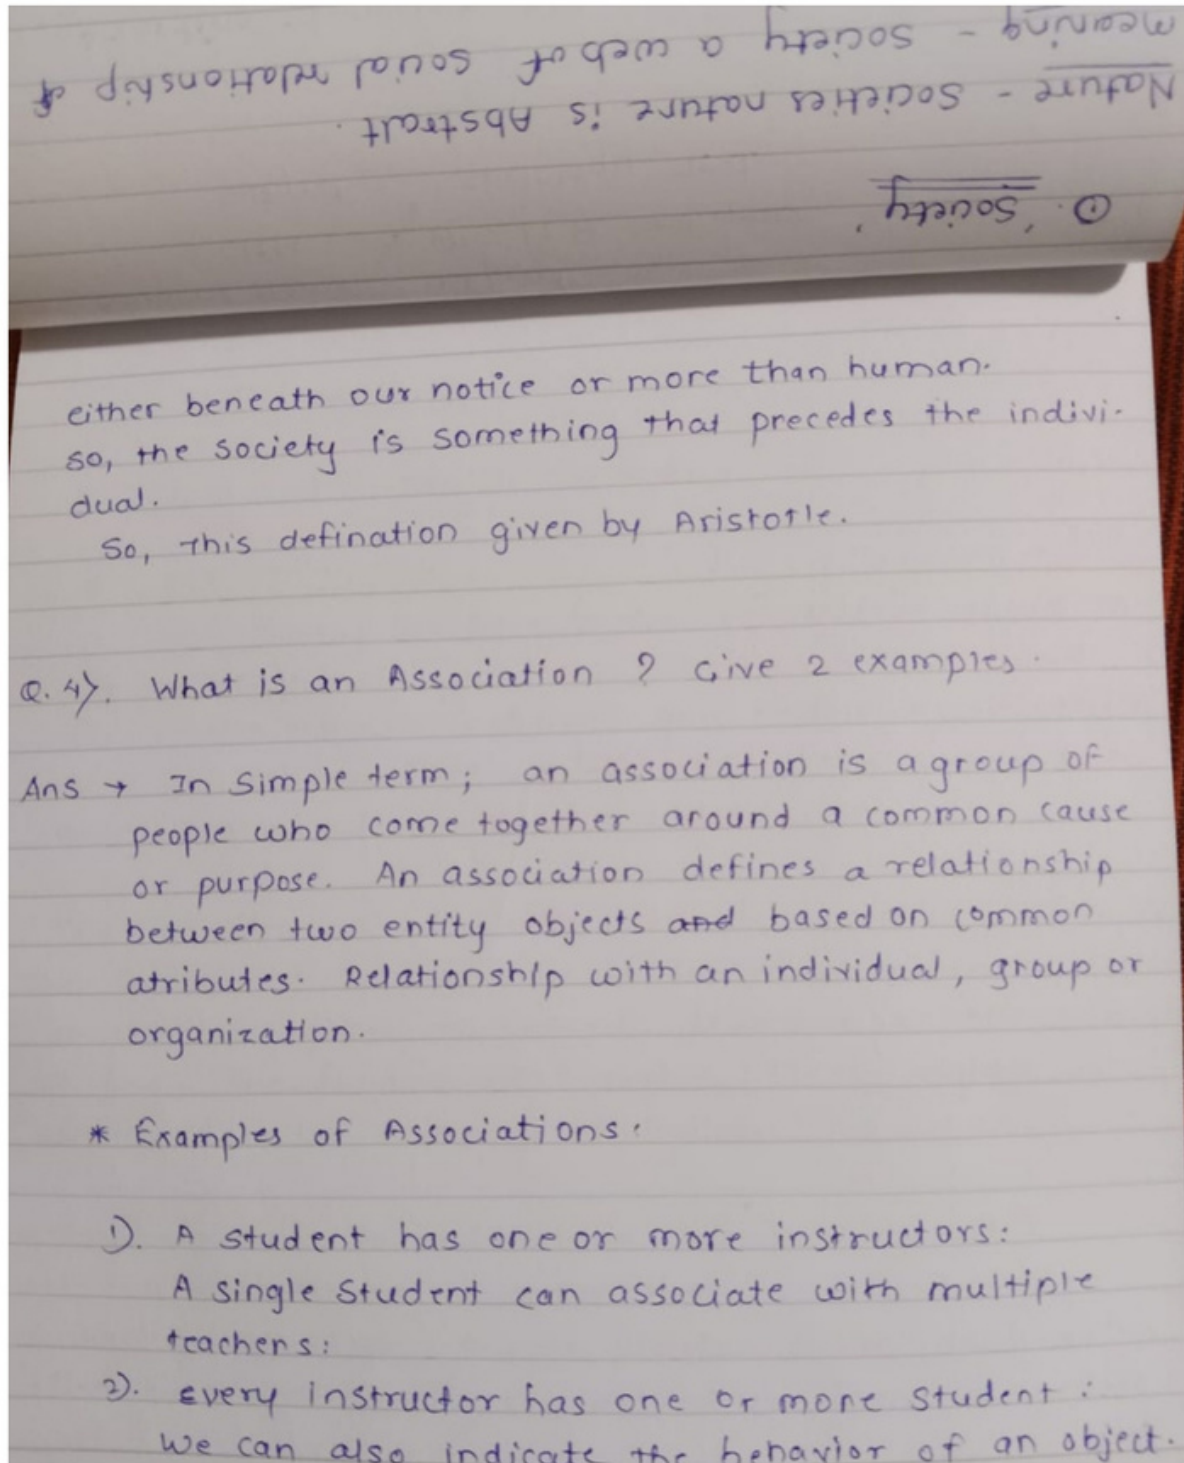 ① 'Society'
Nature - Societies nature is Abstract.
meaning - society a web of social relationship of
either beneath our notice or more than human.
so, the society is something that precedes the indivi-
dual.
So, This defination given by Aristotle.
Q.4). What is an Association ? Give 2 examples.
Ans → In Simple term; an association is a group of
people who come together around a common cause
or purpose. An association defines a relationship
between two entity objects and based on common
atributes. Relationship with an individual, group or
organization.
* Examples of Associations:
1). A student has one or more instructors:
A single Student can associate with multiple
teachers:
2). Every instructor has one or more student :
We can also indicate the behavior of an object.